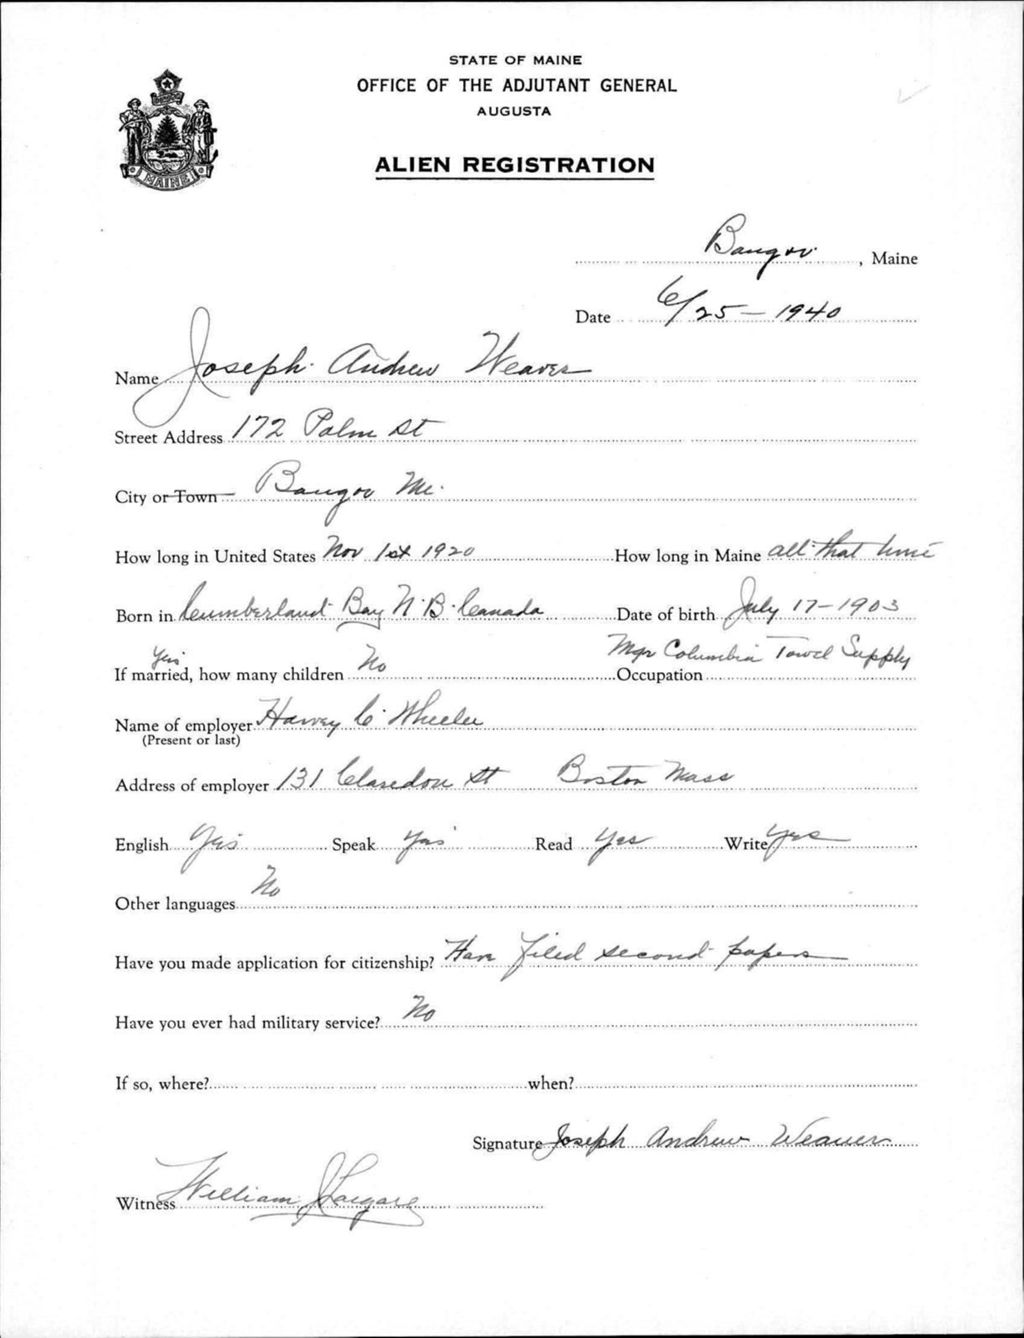 STATE OF MAINE
OFFICE OF THE ADJUTANT GENERAL
AUGUSTA
ALIEN REGISTRATION
MAINE
Bangor, Maine
Date 6/25-1940
Name Joseph Andrew Weaver
Street Address 172 Palm St
City or Town Bangor Me.
How long in United States Nov 1st 1920 How long in Maine all that time
Born in Cumberland Bay N.B. Canada Date of birth July 17-1903
Yes
If married, how many children No Occupation Mgr Columbia Towel Supply
Name of employer Harvey C. Wheeler
(Present or last)
Address of employer 131 Claredon St Boston Mass
English Yes Speak yes Read yes Write yes
Other languages No
Have you made application for citizenship? Have filed second papers
Have you ever had military service? No
If so, where? when?
Signature Joseph Andrew Weaver
Witness William